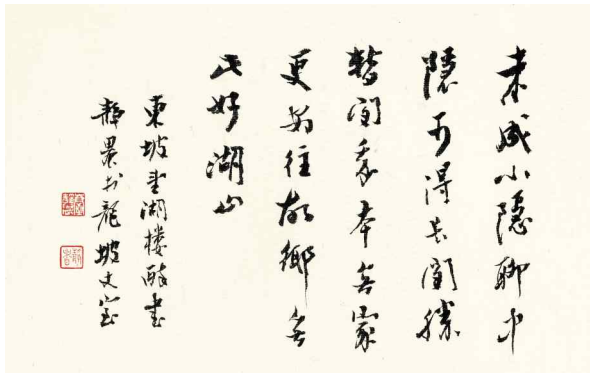 未成小隱聊中
隱可得長閒勝
暫閒我本無家
更安往故鄉無
此好湖山
東坡望湖樓醉書
靜農於龍坡丈室